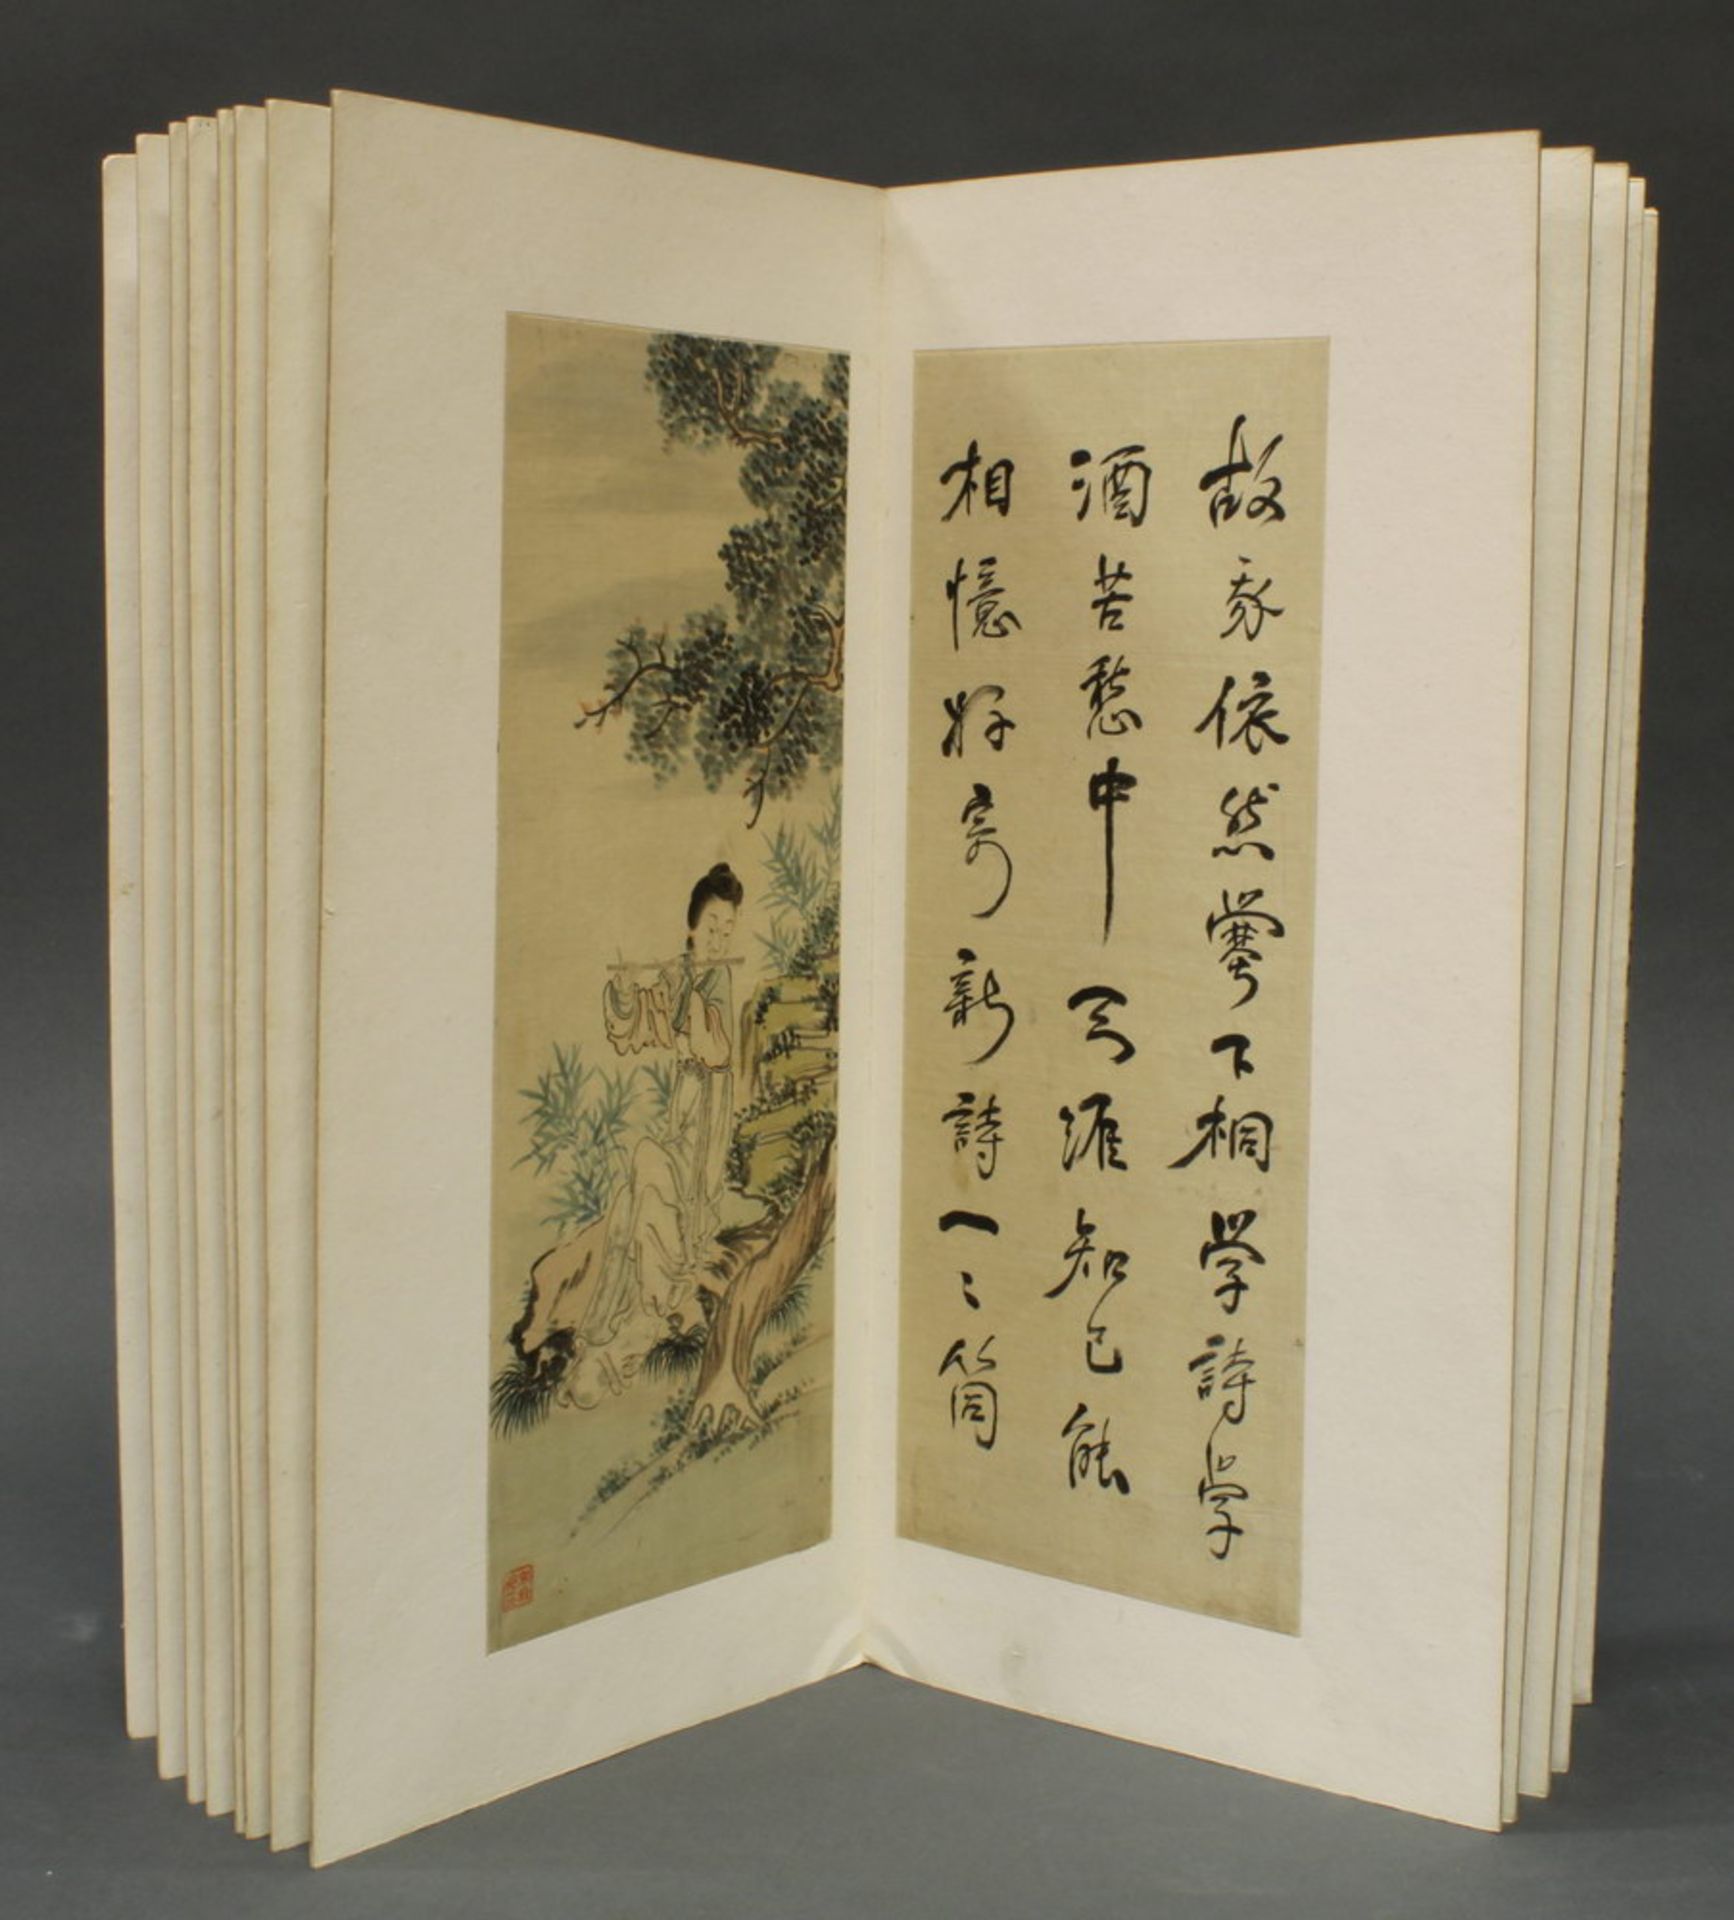 故我依然爨下桐學詩學
酒苦愁中天涯知己能
相憶好寄新詩一〻筒